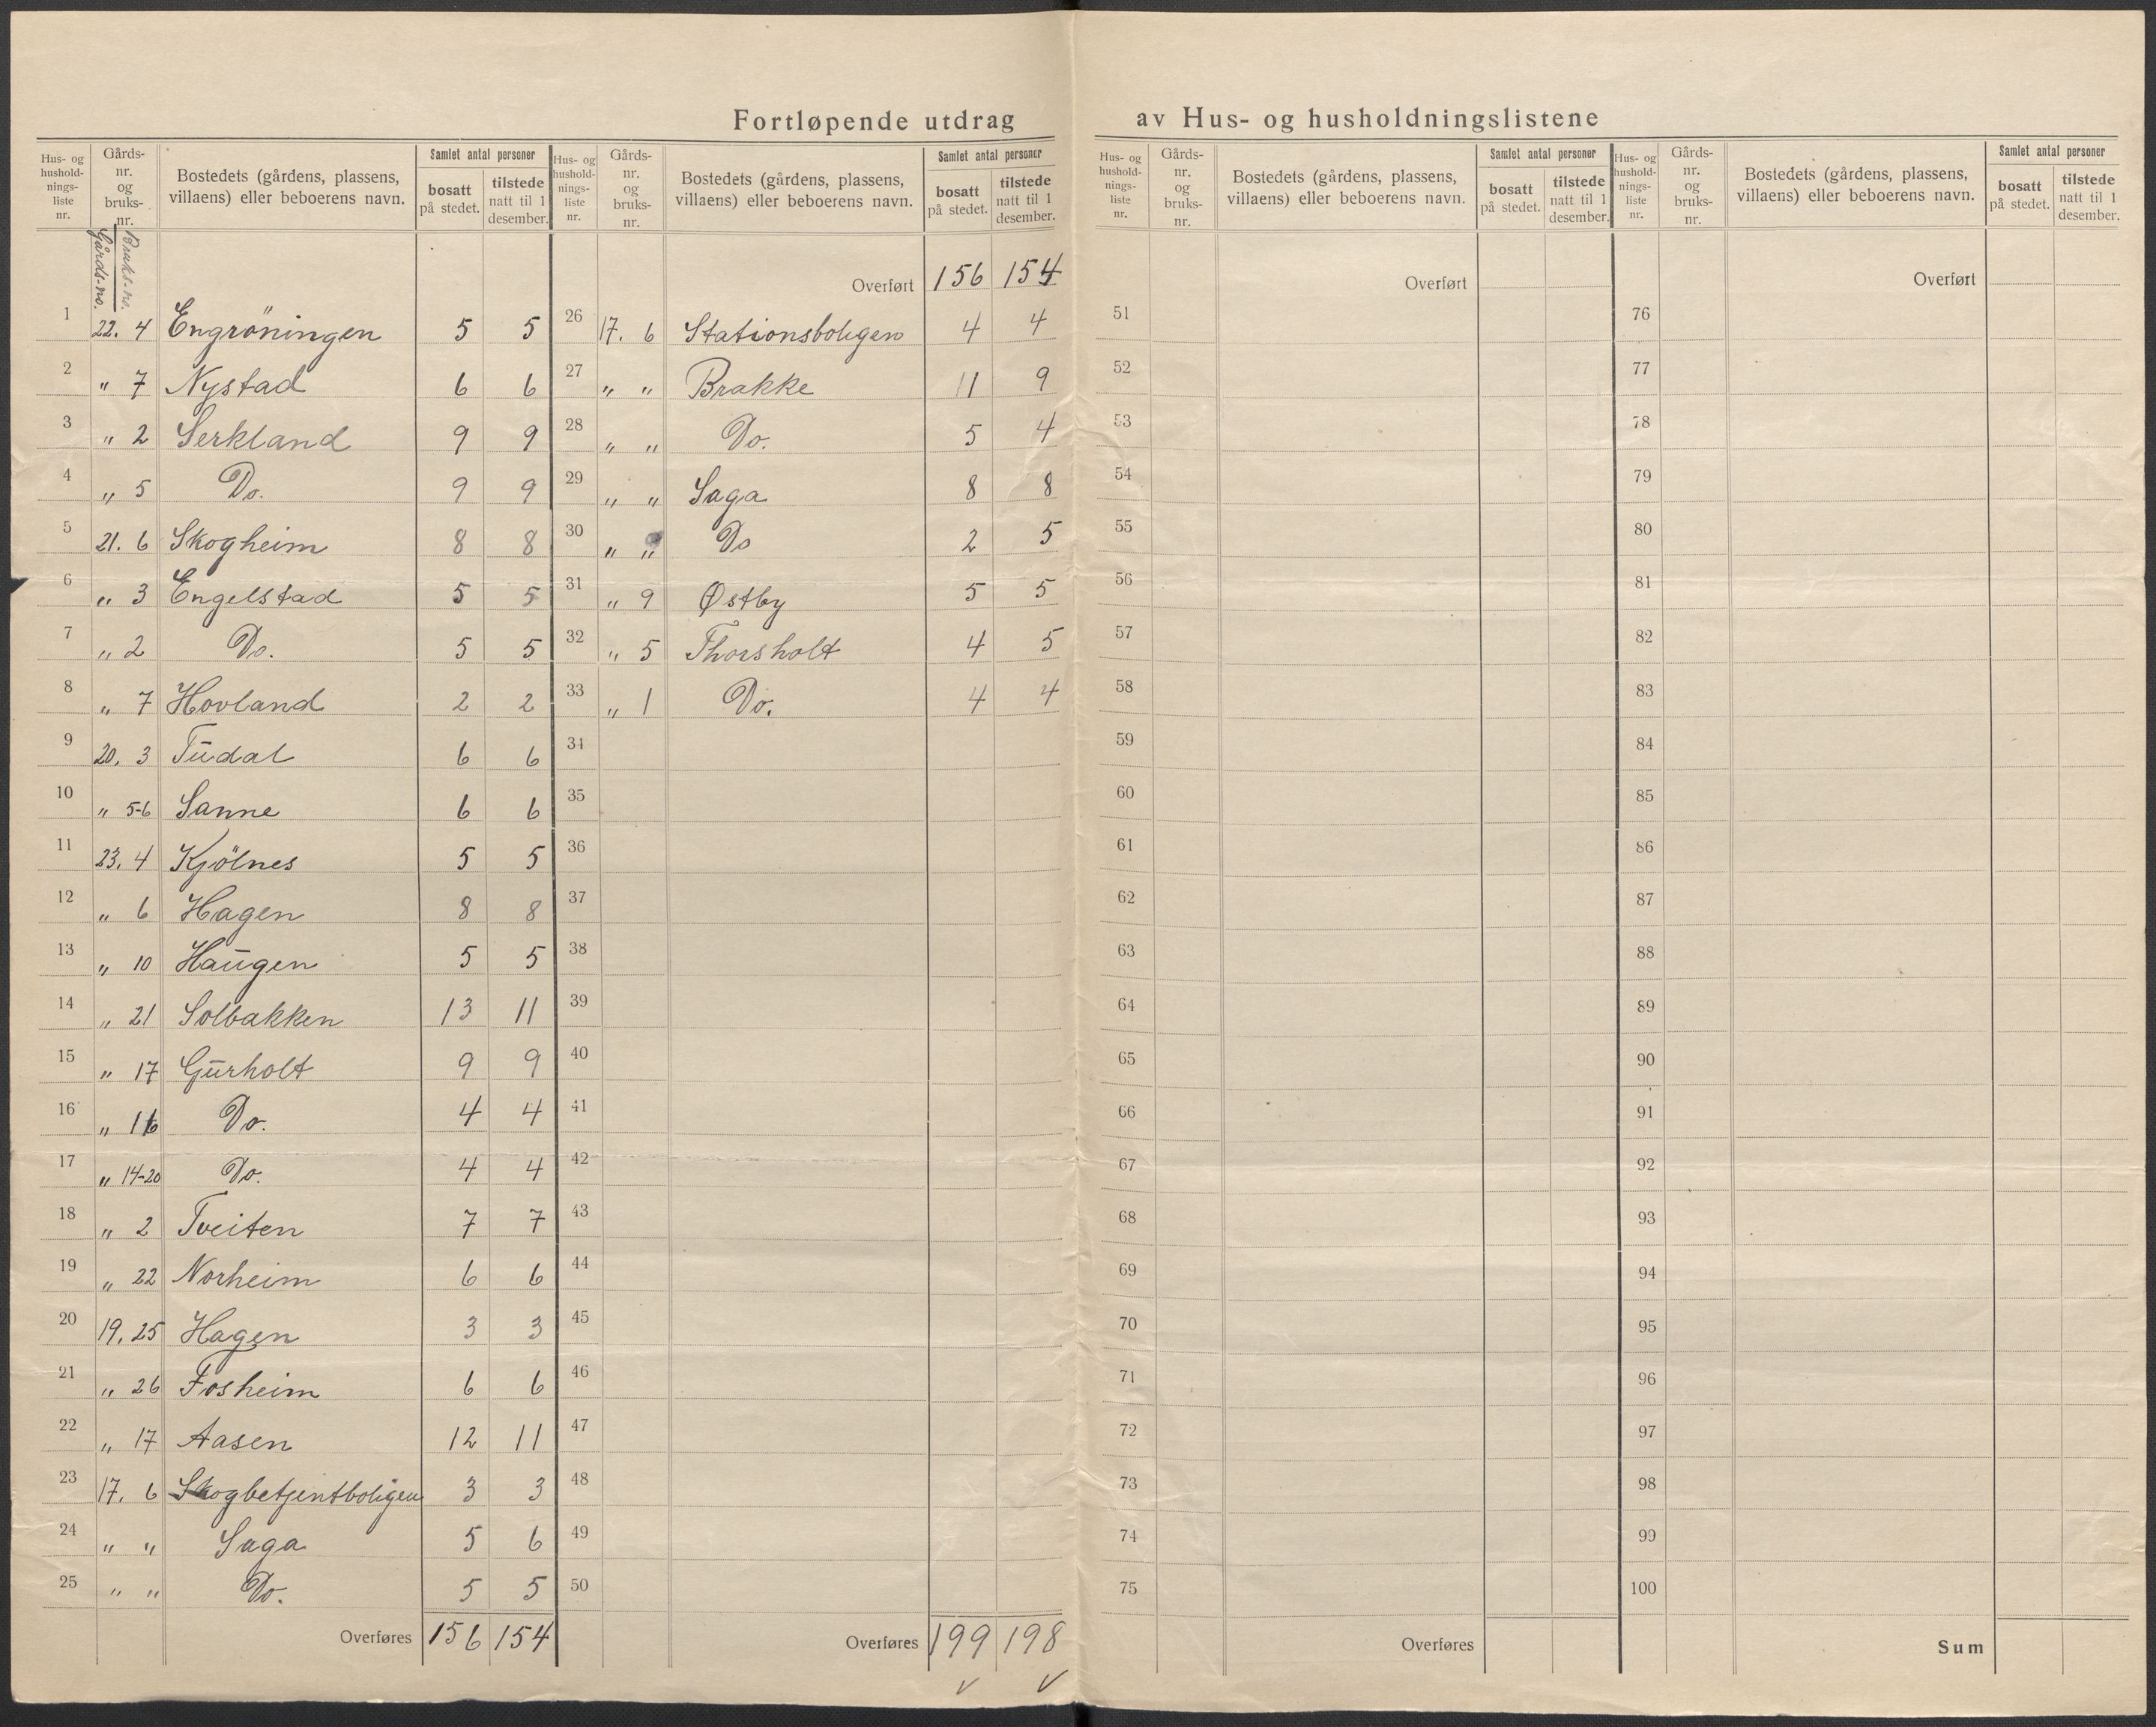 Fortløpende utdrag av Hus- og husholdningslistene
Hus- og hushold-nings-liste nr. Gårds-nr. og bruks-nr. Bostedets (gårdens, plassens, villaens) eller beboerens navn. Samlet antal personer bosatt på stedet. tilstede natt til 1 desember.
Hus- og hushold-nings-liste nr. Gårds-nr. og bruks-nr. Bostedets (gårdens, plassens, villaens) eller beboerens navn. Samlet antal personer bosatt på stedet. tilstede natt til 1 desember.
Hus- og hushold-nings-liste nr. Gårds-nr. og bruks-nr. Bostedets (gårdens, plassens, villaens) eller beboerens navn. Samlet antal personer bosatt på stedet. tilstede natt til 1 desember.
Hus- og hushold-nings-liste nr. Gårds-nr. og bruks-nr. Bostedets (gårdens, plassens, villaens) eller beboerens navn. Samlet antal personer bosatt på stedet. tilstede natt til 1 desember.
Gårds-no. Bruks-no.
1 22. 4 Engröningen 5 5
2 " 7 Nystad 6 6
3 " 2 Serkland 9 9
4 " 5 Do. 9 9
5 21. 6 Skogheim 8 8
6 " 3 Engelstad 5 5
7 " 2 Do. 5 5
8 " 7 Hovland 2 2
9 20. 3 Tudal 6 6
10 " 5-6 Sanne 6 6
11 23. 4 Kjölnes 5 5
12 " 6 Hagen 8 8
13 " 10 Haugen 5 5
14 " 21 Solbakken 13 11
15 " 17 Gurholt 9 9
16 " 16 Do. 4 4
17 " 14-20 Do. 4 4
18 " 2 Tveiten 7 7
19 " 22 Norheim 6 6
20 19. 25 Hagen 3 3
21 " 26 Fosheim 6 6
22 " 17 Aasen 12 11
23 17. 6 Skogbetjentboligen 3 3
24 " " Saga 5 6
25 " " Do. 5 5
Overføres 156 154
Overført 156 154
26 17. 6 Stationsboligen 4 4
27 " " Brakke 11 9
28 " " Do. 5 4
29 " " Saga 8 8
30 " " Do 2 5
31 " 9 Østby 5 5
32 " 5 Thorsholt 4 5
33 " 1 Do. 4 4
34
35
36
37
38
39
40
41
42
43
44
45
46
47
48
49
50
Overføres 199 198
Overført
51
52
53
54
55
56
57
58
59
60
61
62
63
64
65
66
67
68
69
70
71
72
73
74
75
Overføres
Overført
76
77
78
79
80
81
82
83
84
85
86
87
88
89
90
91
92
93
94
95
96
97
98
99
100
Sum